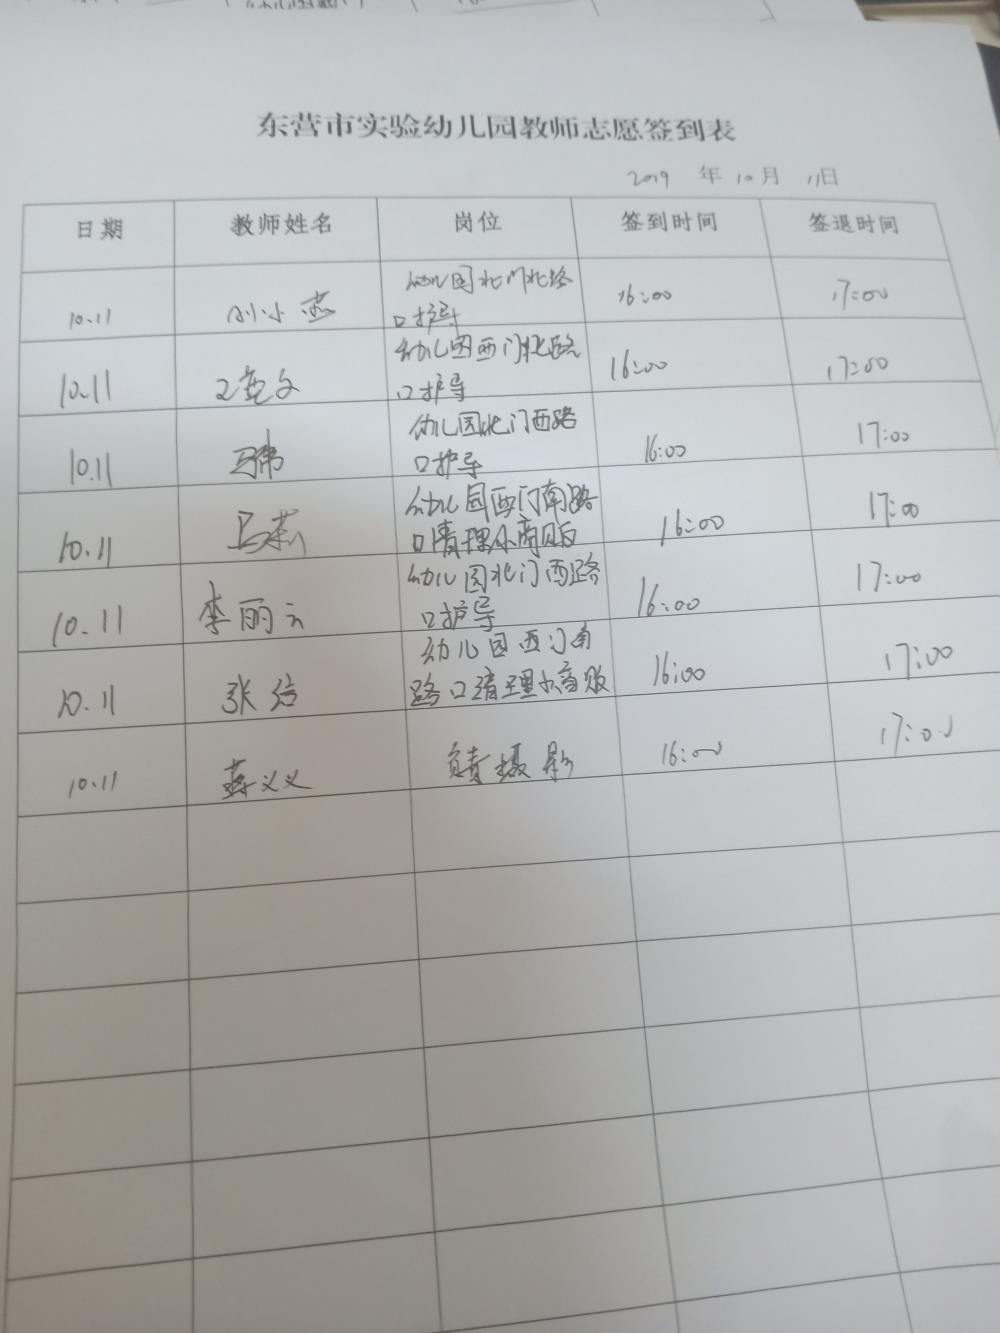 东营市实验幼儿园教师志愿签到表
2019 年 10 月 11 日
日期 教师姓名 岗位 签到时间 签退时间
10.11 刘小燕 幼儿园北门北路 16:00 17:00
口护导
10.11 幼儿园西门北路 16:00 17:00
口护导
10.11 马伟 幼儿园北门西路 16:00 17:00
口护导
10.11 马莉 幼儿园西门南路 16:00 17:00
口清理小商贩
10.11 李丽云 幼儿园北门西路 16:00 17:00
口护导
10.11 张 幼儿园西门南 16:00 17:00
路口清理小商贩
10.11 义义 负责摄影 16:00 17:00